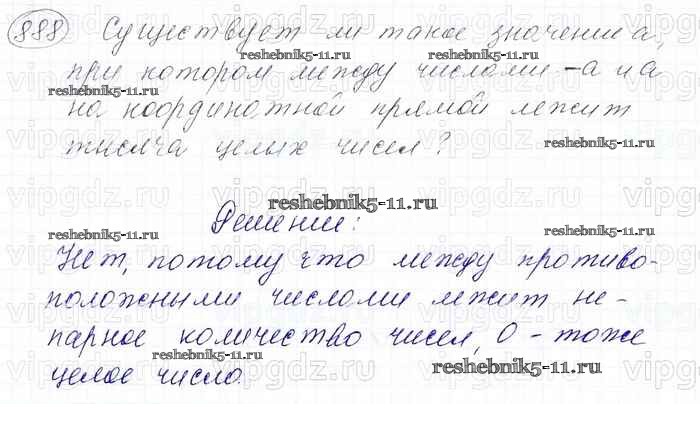 888 Существует ли такое значение а,
при котором между числами -а и а
на координатной прямой лежит
тысяча целых чисел?
Решение:
Нет, потому что между противо-
положными числами лежит не-
парное количество чисел, 0 - тоже
целое число.
reshebnik5-11.ru
reshebnik5-11.ru
reshebnik5-11.ru
reshebnik5-11.ru
reshebnik5-11.ru
reshebnik5-11.ru
reshebnik5-11.ru
reshebnik5-11.ru
vipgdz.ru